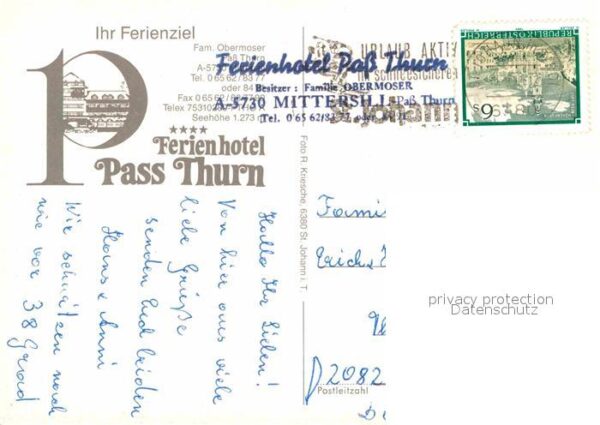 Ihr Ferienziel
Fam. Obermoser
Paß Thurn
Tel. 0 65 62/83 77
oder 84
Seehöhe 1.273 m
Ferienhotel
Pass Thurn
Ferienhotel Paß Thurn
Besitzer: Familie OBERMOSER
A-5730 MITTERSILL, Paß Thurn
Tel. 0 65 62/83 77 oder
URLAUB AKTIV
im schneesichere
REPUBLIK ÖSTERREICH
S 6
Foto R. Kriesche, 6380 St. Johann i. T.
Hallo Ihr Lieben!
Von hier aus viele
liebe Grüße
senden Euch beiden
Hans & Anni
Wir schwitzen noch
wie vor 38 Grad
Fami
Erich
2082
Postleitzahl
privacy protection
Datenschutz